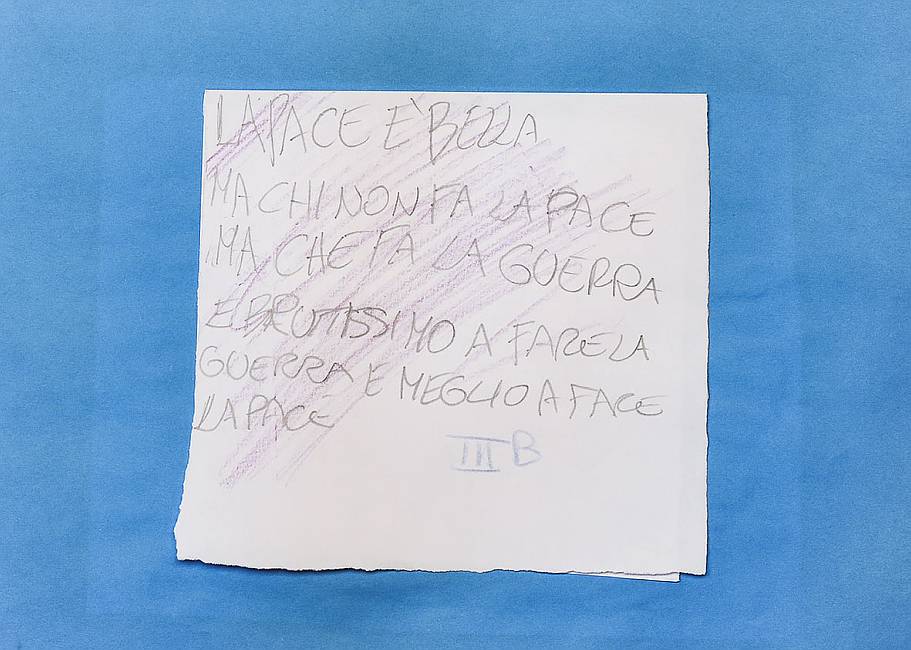 LA PACE E' BELLA
MA CHI NON FA LA PACE
MA CHE FA LA GUERRA
E BRUTISSIMO A FARE LA
GUERRA E MEGLIO A FACE
LA PACE
III B